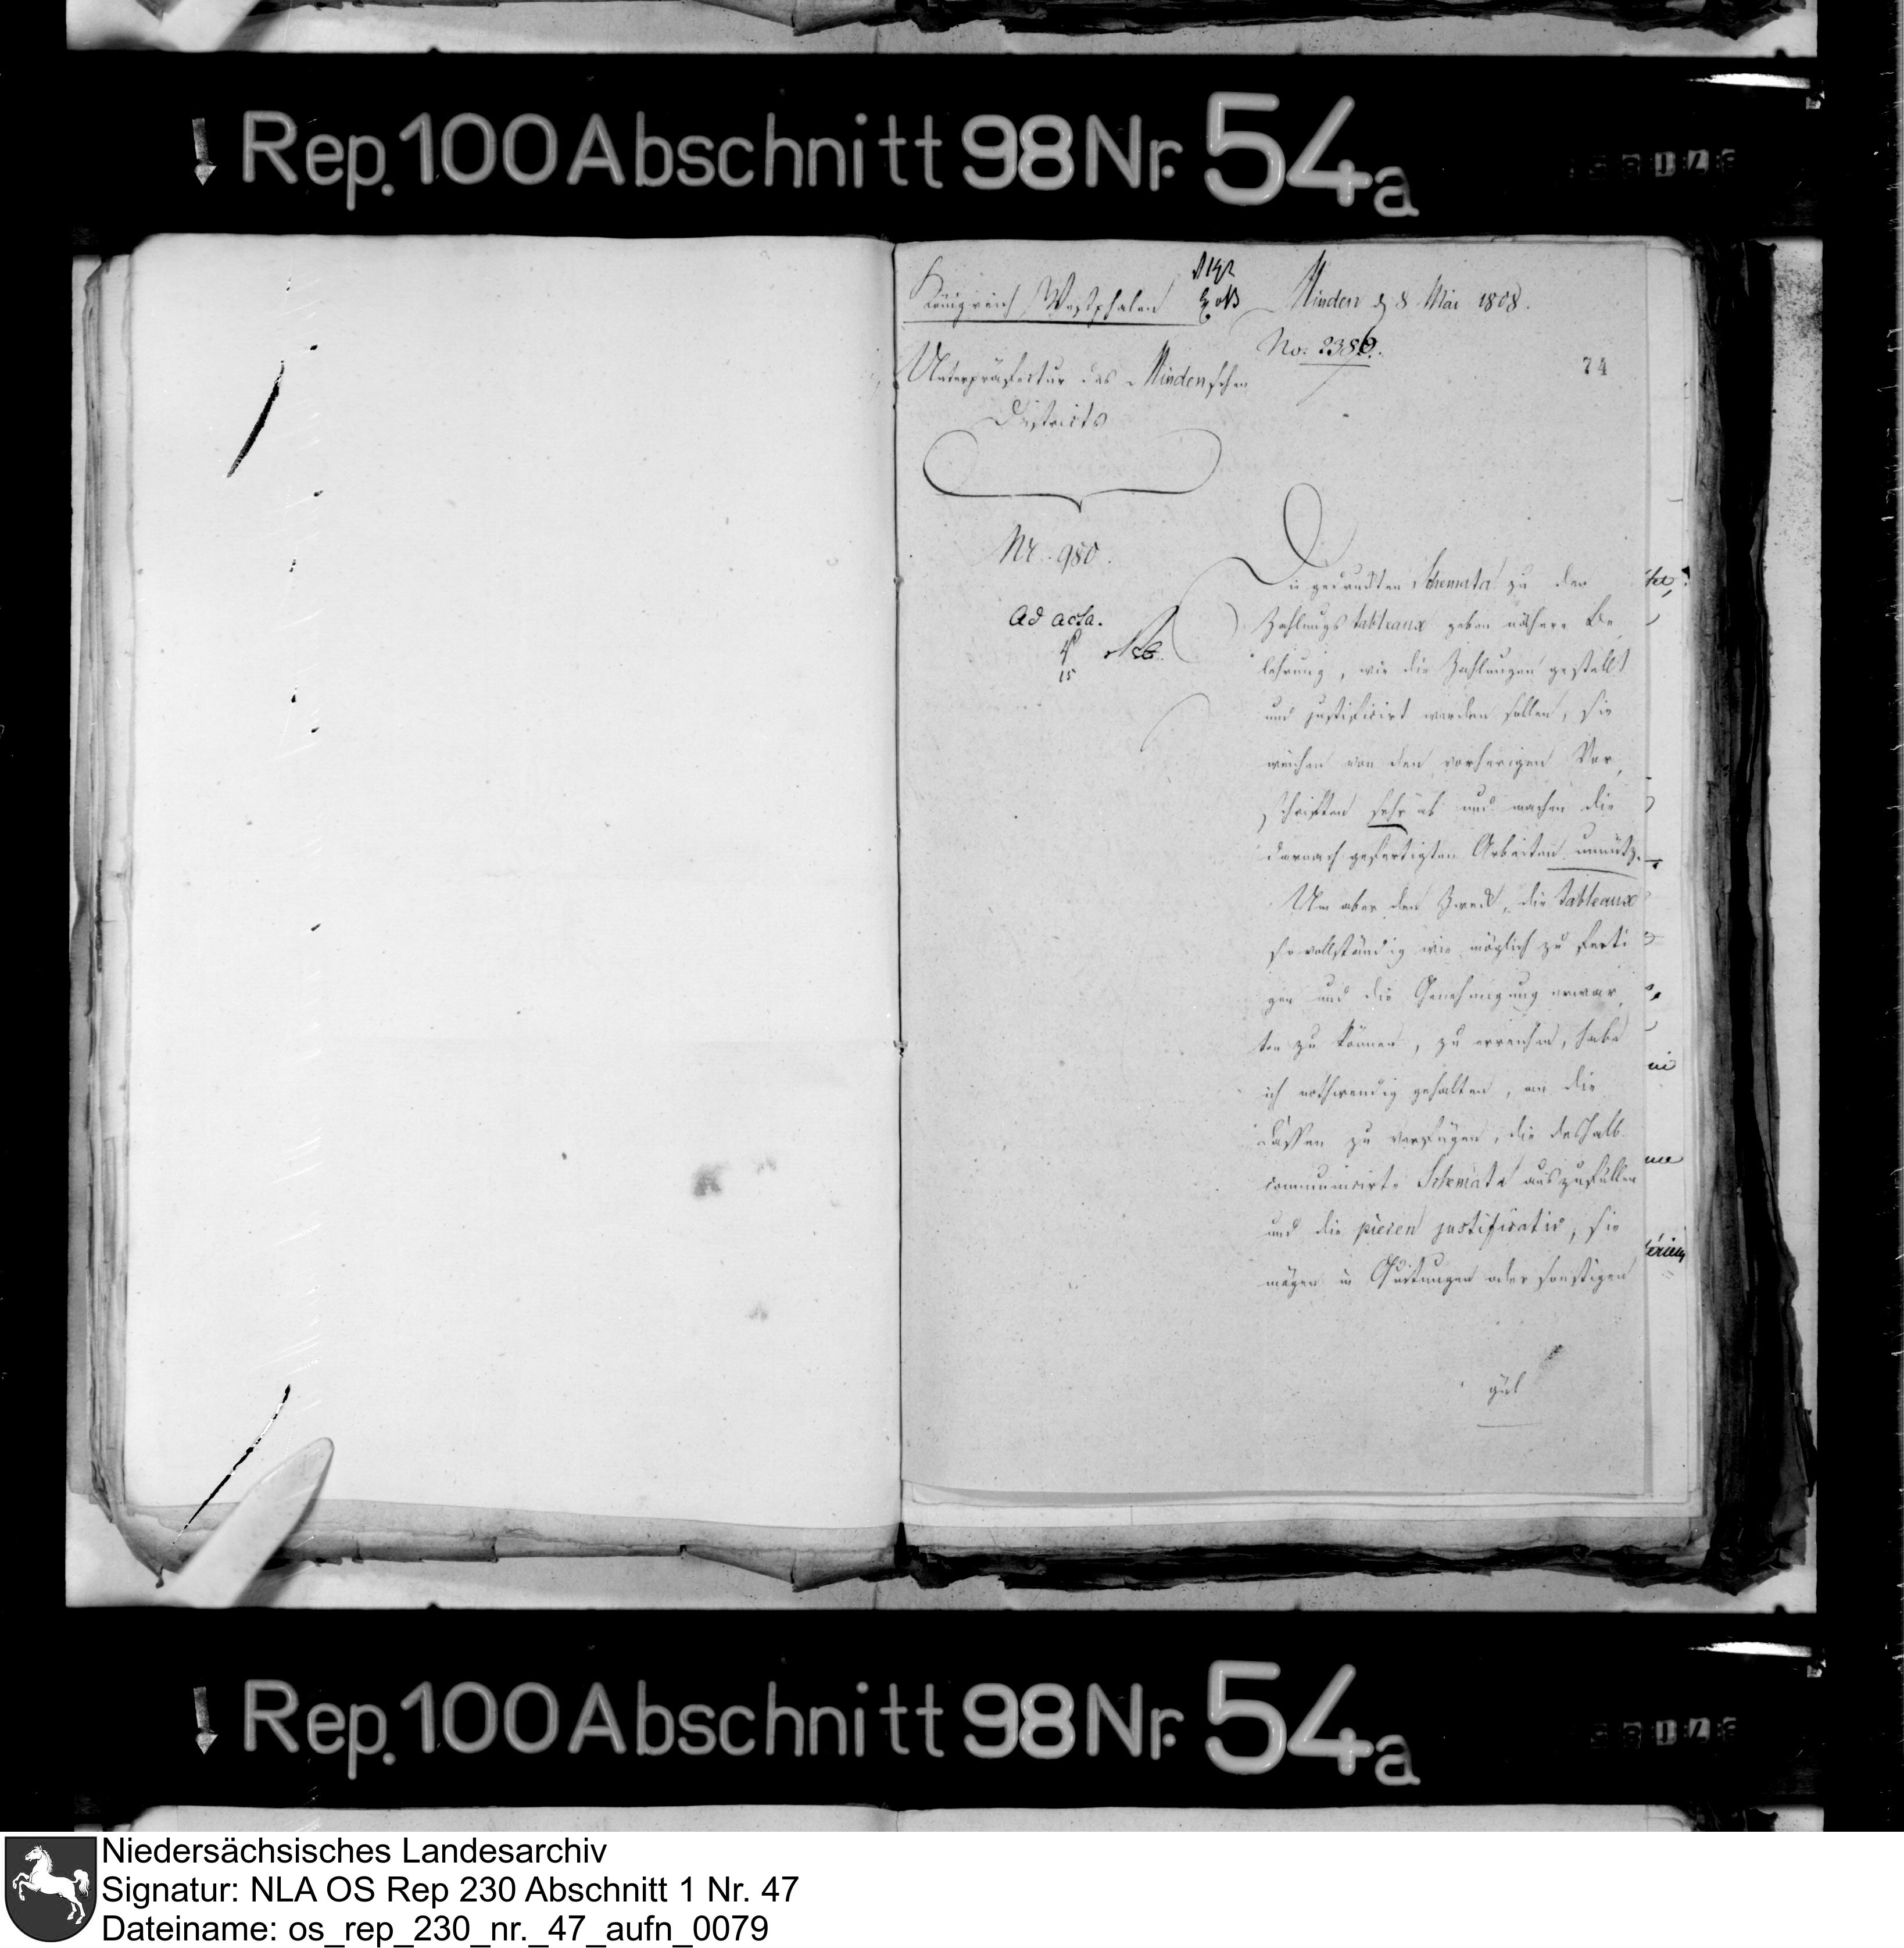 Rep. 100 Abschnitt 98 Nr. 54a
Königreich Westphalen
Minden d 8 Mai 1808.
No. 2386.
74
Unterpräfectur des Mindenschen
Districts
Nr. 980.
ad acta.
15
Die gedruckten Schemata zu den
Zahlungstableaux geben nähere Be
lehrung, wie die Zahlungen gestellt
und justificirt werden sollen, sie
weichen von den vorherigen Vor
schriften sehr ab und machen die
darnach gefertigten Arbeiten unnütz.
Um aber den Zweck, die tableaux
so vollständig wie möglich zu ferti
gen und die Genehmigung erwar
ten zu können, zu erreichen, habe
ich nothwendig gehalten, an die
Cassen zu verfügen, die deshalb
communicirte Schemata auszufüllen
und die piecen justificativ, sie
mögen in Quitungen oder sonstigen
gül
Rep. 100 Abschnitt 98 Nr. 54a
Niedersächsisches Landesarchiv
Signatur: NLA OS Rep 230 Abschnitt 1 Nr. 47
Dateiname: os_rep_230_nr._47_aufn_0079